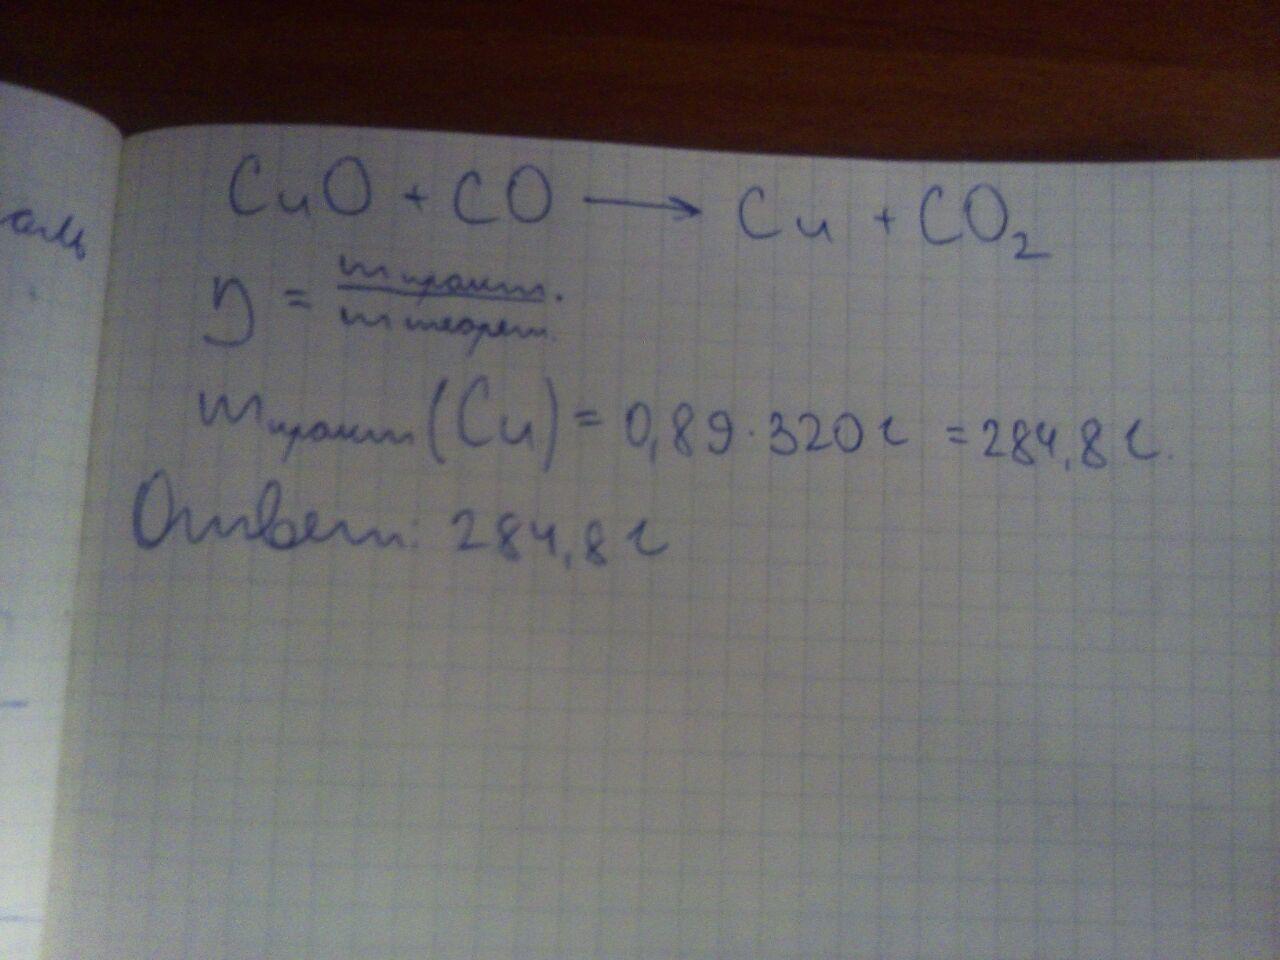 CuO + CO → Cu + CO₂
η = m практ. / m теорет.
m практ (Cu) = 0,89 · 320 г = 284,8 г.
Ответ: 284,8 г